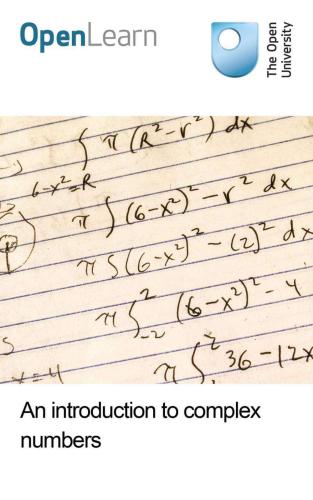 OpenLearn
The Open
University
∫ π (R²-r²) dx
6-x²=R
π ∫ (6-x²)² - r² dx
π ∫ (6-x²)² - (2)² dx
π ∫₋₂² (6-x²)² - 4
π ∫² 36-12x
x=4
An introduction to complex
numbers